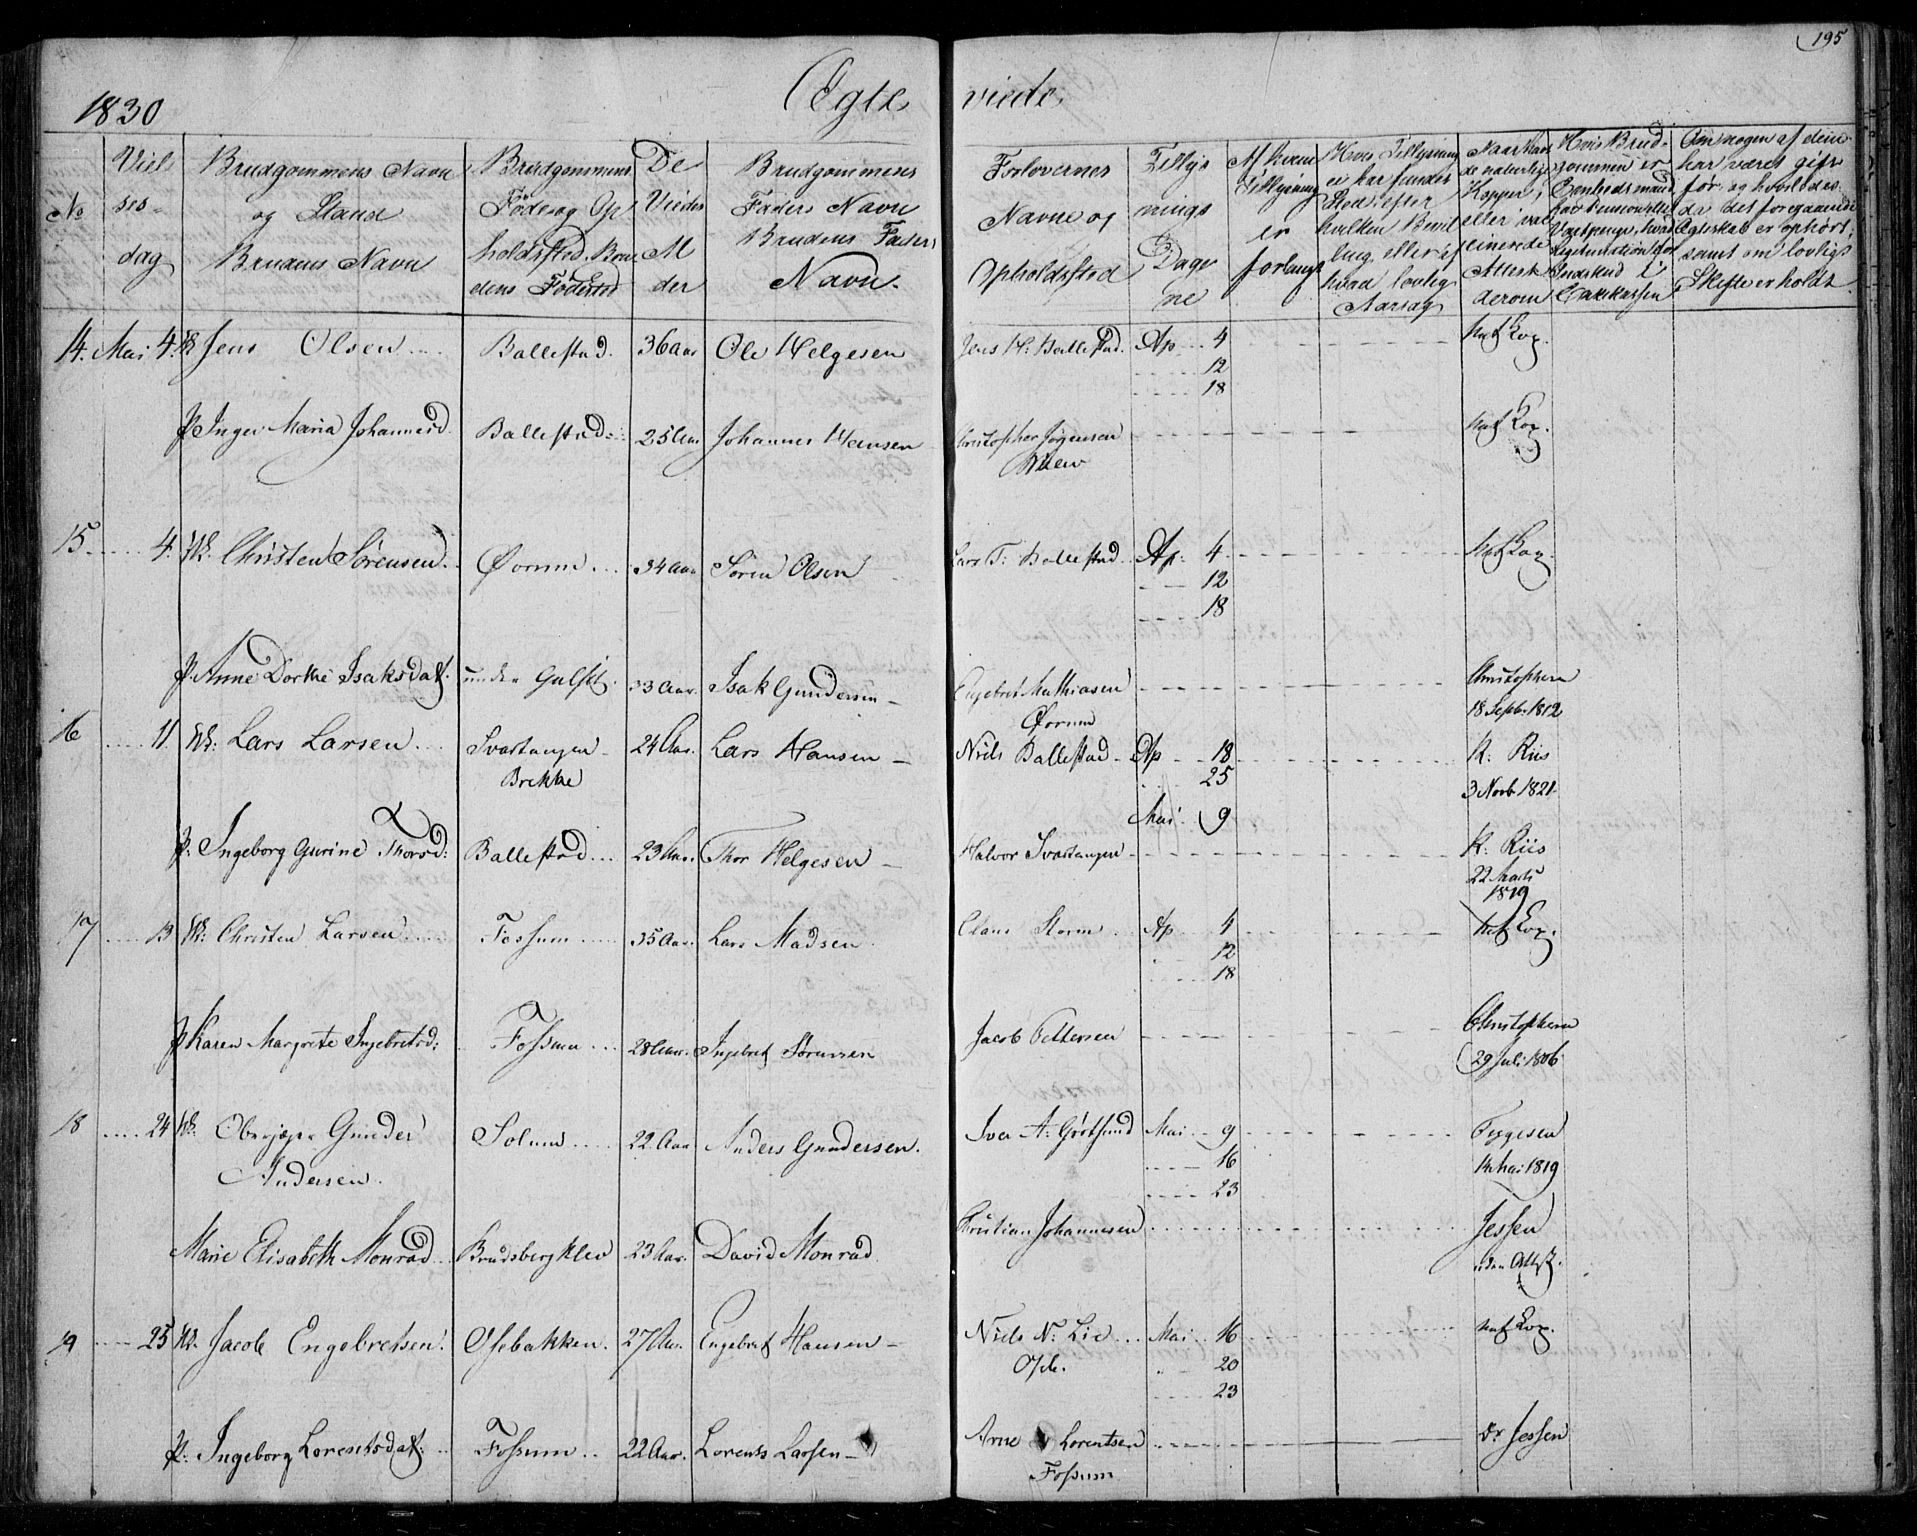 195
1830 Ægte viede
No
Viel
ses
dag
Brudgommens Navn
og Stand
Brudens Navn
Brudgommens
Føde og Op
holdssted. Bru
dens Fødested
De
Viedes
Al
der
Brudgommens
Faders Navn
Brudens Faders
Navn.
Forlovernes
Navne og
Opholdssted
Tillys
nings
Dage
ne
Af hvem
Tillysning
er
forlangt
Hvis Tillysning
ei har fundet
Sted, efter
hvilken Bevil
ling, eller af
hvad lovlig
Aarsag
Naar havt
de naturlige
Kopper,
eller vac
cinerede
Attest
derom
Hvis Brud-
gommen er
Enroulleret
Om nogen af dem
har været gift
før, og hvis det,
da det foregaaende
Ægteskab er ophørt,
samt om lovligt
Skifte er holdt
14. Mai 4. Uk Jens Olsen Ballestad. 36 aar Ole Helgesen Jens H: Ballestad. Ap 4 Nat. Kop.
12
18
p Inger Maria Johannesd. Ballestad 25 Aar Johannes Hansen Christopher Jørgensen Nat Kop.
15 4. Uk. Christen Sørensen Øorum 34 Aar Søren Olsen Lars T: Ballestad Ap: 4 Nat Kop.
12
18
p. Anne Dorthe Isaksdat. under Gulset. 33 Aar. Isak Gundersen Engebret Mathiasen Christophersen
Øorum 18 Sept: 1812
16 11 Uk: Lars Larsen Svartangen 24 Aar. Lars Hansen Niels Ballestad Ap 18 K. Riis
Brekke 25 3 Novb 1821
Mai 9
p: Ingeborg Gurine Thorsd: Ballestad 23 Aar. Thor Helgesen Halvor Svartangen K. Riis
22 Marts
1819
17 13 Uk: Christen Larsen Fossum 35 Aar. Lars Madsen Claus Storm Ap 4 Nat Kop.
12
18
p Karen Margrete Ingebretsd: Fossum 28 Aar. Ingebret Sørensen Jacob Pettersen Christophersen
29 Juli 1806
18 24 Uk: Oberjæger Gunder Solum 22 Aar Anders Gundersen. Iver A: Mai 9 Tygesen
Andersen. 16 14 Mai 1819
23
Marie Elisabeth Monrad Bradsbergklev 23 Aar. David Monrad Christian Johannesen Jessen
uden Attest.
19 25 Uk. Jacob Engebretsen. Osebakken. 27 Aar. Engebret Hansen Niels N. Lie Mai 16 Nat Kop.
20
23
p: Ingeborg Lorentsdat: Fossum 22 Aar. Lorents Larsen Arne Lorentsen Dr Jessen
Fossum